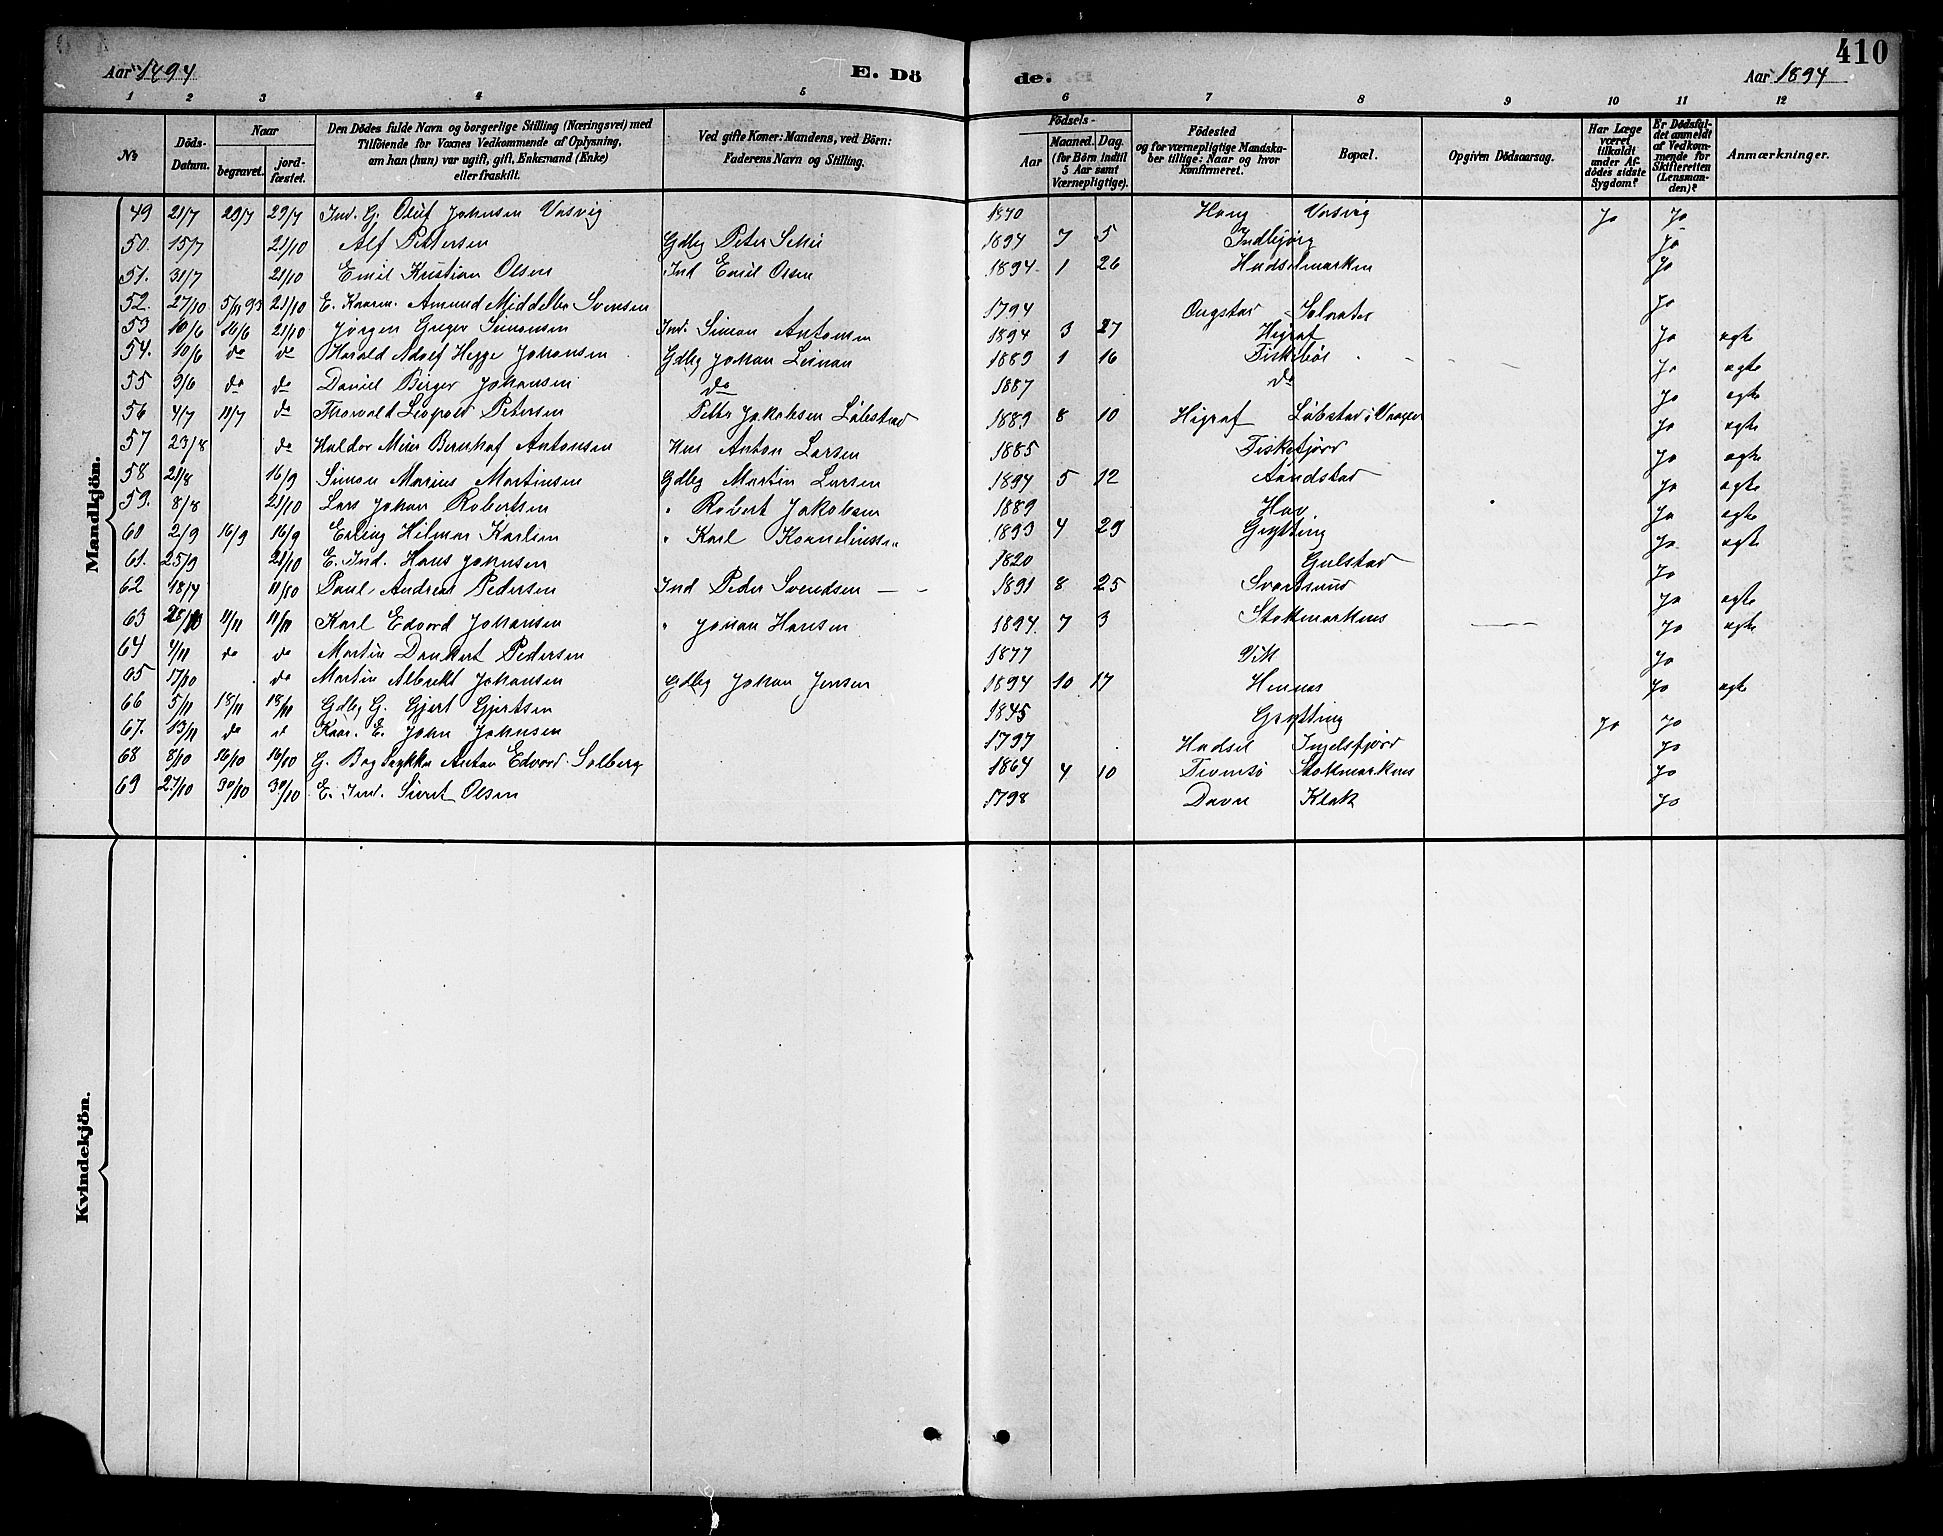 410
Aar 1894 E. Dö de. Aar 1894
1 2 3 4 5 6 7 8 9 10 11 12
No Döds-Datum. Naar begravet. jord-fæstet. Den Dödes fulde Navn og borgerlige Stilling (Næringsvei) med Tilföiende for Voxnes Vedkommende af Oplysning, om han (hun) var ugift, gift, Enkemand (Enke) eller fraskilt. Ved gifte Koner: Mandens, ved Börn: Faderens Navn og Stilling. Födsels- Aar Maaned. Dag. (for Börn indtil 5 Aar samt Værnepligtige). Födested og for værnepligtige Mandska-ber tillige: Naar og hvor konfirmeret. Bopæl. Opgiven Dödsaarsag. Har Læge været tilkaldt under Af-dödes sidste Sygdom? Er Dödsfal-det anmeldt af Vedkom-mende for Skifteretten (Lensman-den)? Anmærkninger.
Mandkjön.
49 21/7 29/7 29/7 Ind. G. Oluf Johnsen Vasvig 1870 Haug Vasvig Jo Jo
50. 15/7 21/10 Alf Pettersen Gdbg Peter 1894 7 5 Indbjörg Jo
51. 31/7 21/10 Emil Kristian Olsen Ind Emil Olsen 1894 1 26 Hadselmarken Jo
52. 27/10 5/11 93 21/10 E. Kaarm. Amund Middelbo Svensen 1794 Ongstad Jo
53 10/6 16/6 21/10 Jörgen Greger Simonsen Ind. Simon Antonsen 1894 3 27 Higraf Jo ægte
54. 10/6 do do Harald Adolf Hegge Johansen Gdbg Johan 1889 1 16 Fiskebøl Jo ægte
55 9/6 do do Daniel Birger Johansen do 1887 do Jo ægte
56 4/7 11/7 do Thorvald Leopold Petersen Peter Jakobsen Löbstad 1889 8 10 Higraf Löbstad i Vaagen Jo ægte
57 23/8 do Haldor Meier Bernhof Antonsen Hm Anton Larsen 1885 Fiskefjord Jo ægte
58 21/8 16/9 Simon Marius Martinsen Gdbg Martin Larsen 1894 5 12 Aandstad Jo ægte
59. 8/8 21/10 Lars Johan Robertsen " Robert Jakobsen 1889 Hov Jo ægte
60 2/9 16/9 16/9 Erling Hilmar Karlsen " Karl Korneliussen 1893 4 29 Grytting Jo ægte
61. 25/9 21/10 E. Ind. Hans Johnsen 1820 Gulstad Jo
62 18/7 11/10 Paul Andreas Pedersen Ind Peder Svendsen 1891 8 25 Svartsund Jo ægte
63 28/10 11/11 11/11 Karl Edvard Johansen " Johan Hansen 1894 7 3 Stokmarknes Jo ægte
64 4/11 do do Martin Dankert Pedersen 1877 Vik Jo
65 17/10 do Martin Albrikt Johansen Gdbg Johan Jensen 1894 10 17 Hennes Jo ægte
66 5/11 18/11 18/11 Gdbg G. Gjert Gjertsen 1845 Grytting Jo Jo
67. 13/11 do d Kaar. E. John Johnsen 1797 Hadsel Ingelsfjord Jo
68 8/10 16/10 16/10 G. Bogtrykker Anton Edvard Solberg 1864 4 10 Tromsö Stokmarknes Jo
69 27/10 30/10 30/10 E. Ind. Sivert Olsen 1798 Davne Klak Jo
Kvindekjön.